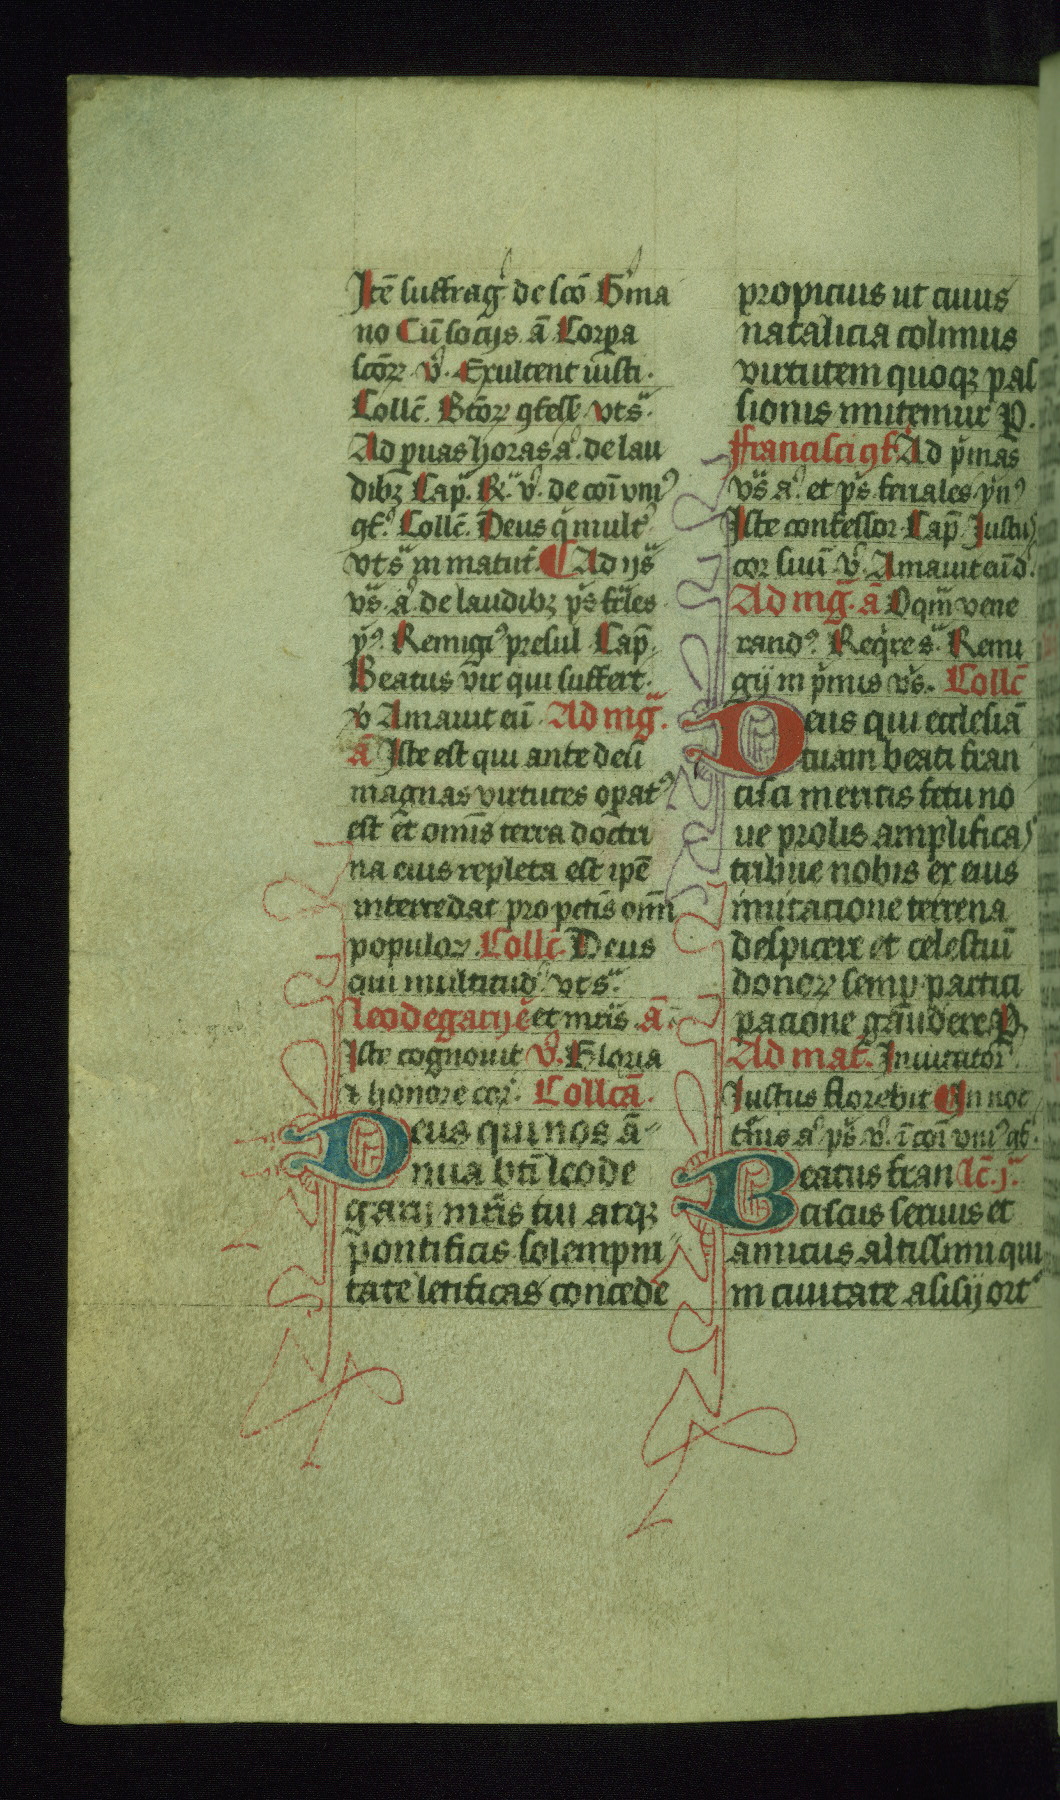 Itē suffrag̃ de scō G̾ma
no Cū socijs ā Corpa
scōꝝ v̾. Exultent iusti.
Collc̄. Bt̄oꝝ ꝯfess̃ vts̃.
Ad p̱uas horas a̾. de lau
dibꝫ Cap̃. R̃. v̾. de cōi vniꝰ
ꝯf̾. Collc̄. Deus q̾ mult̾
vts̃ in matut̄. Ad ijs̃
vs̃. a̾. de laudibꝫ ps̃ fr̄les
ẏꝰ. Remigiꝰ presul Cap̃.
Beatus vir qui suffert.
v̾ Amauit eū. Ad mg̃.
ā Iste est qui ante deū
magnas virtutes oꝑatꝰ
est et om̄is terra doctri
na eius repleta est ip̄e
intercedat pro pctīs om̄i
populoꝝ. Collc̄. Deus
qui multitud̾. vts̃.
leodegarij ē et mr̄is. ā
Iste cognouit v̾. Gloria
⁊ honore cor̾. Collcā.
Deus qui nos ā
nua bt̄i leode
garij mr̄is tui atqꝫ
pontificis solempni
tate letificas concede
propicius ut cuius
natalicia colimus
virtutem quoqꝫ pas
sionis imitemur P̱.
Francisci ꝯf̾. Ad p̾mas
vs̃ a̾. et ps̃ feriales ẏmꝰ
Iste confessor Cap̃ Iustuꝰ
cor suū v̾. Amauit eū d̾.
Ad mg̃. ā O qm̃ vene
randꝰ. Req̾re s̃. Remi
gij in p̾mis vs̃. Collc̄
Deus qui eccl̄esiā
tuam beati fran
cisci meritis fetu no
ue prolis amplificas
tribue nobis ex eius
imitacione terrena
despicere et celestiū
donoꝝ semꝑ partici
pacione gaudere P̱
Ad mat̄. Inuitator̾.
Iustus florebit In noc
tĩs a̾ ps̃ v̾. ī cōi vniꝰ ꝯf̾.
Beatus fran lc̄.j.ᵃ
ciscus seruus et
amicus altissimi qui
in ciuitate asisij ortꝰ